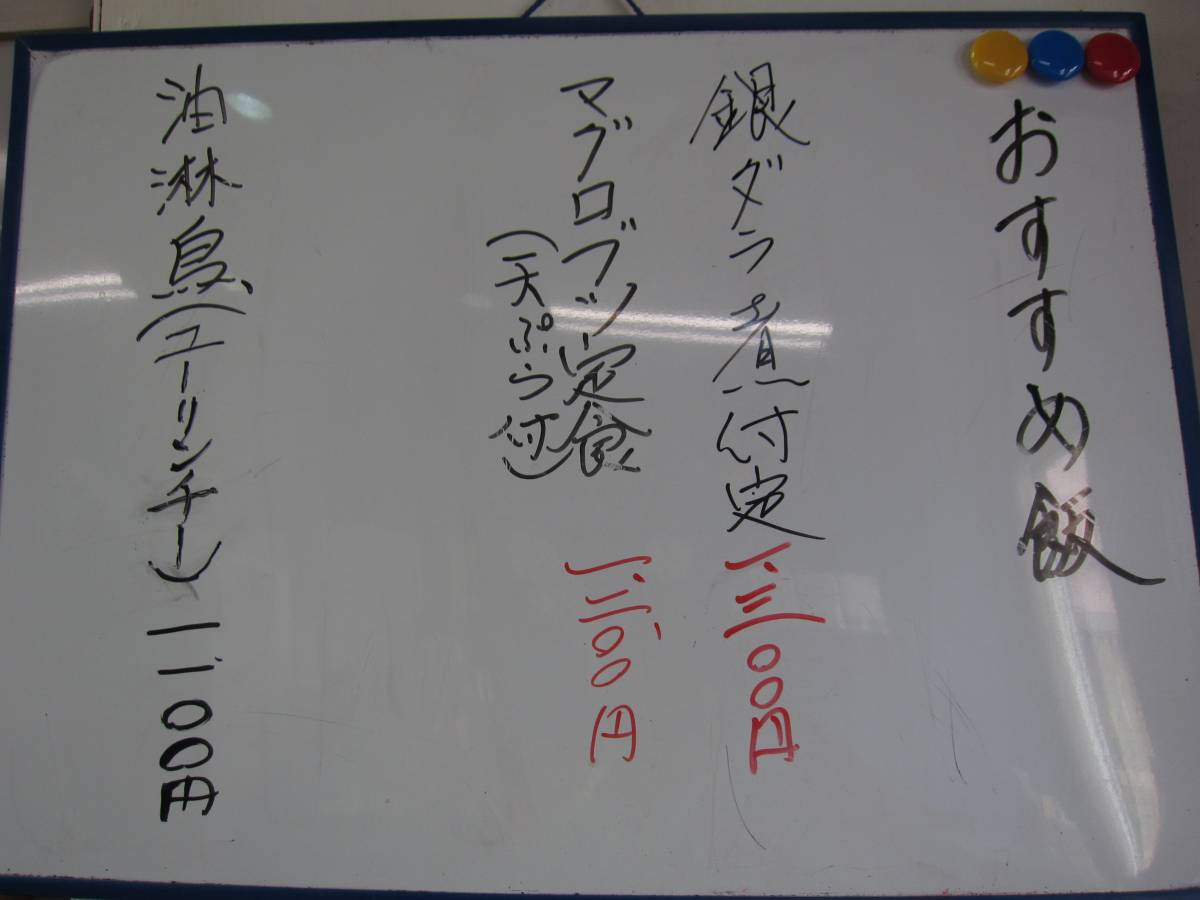 おすすめ飯
銀ダラ煮付定 一、三〇〇円
マグロブツ定食 一、二〇〇円
(天ぷら付)
油淋鳥(ユーリンチー) 一、一〇〇円